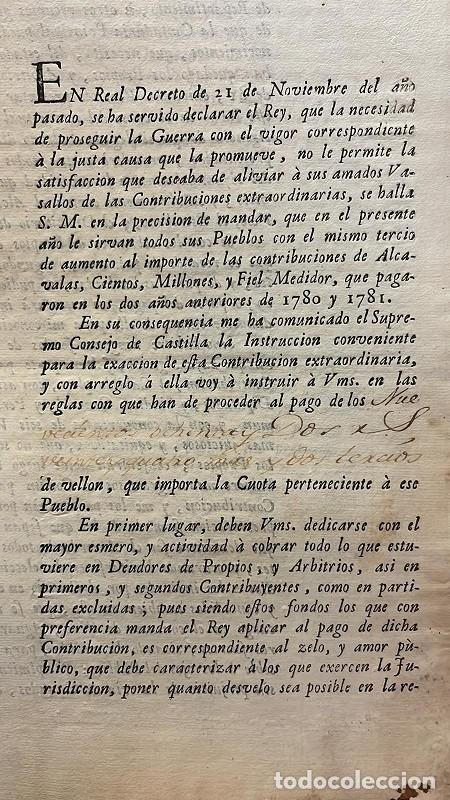 EN Real Decreto de 21 de Noviembre del año
pasado, se ha servido declarar el Rey, que la necesidad
de proseguir la Guerra con el vigor correspondiente
à la justa causa que la promueve, no le permite la
satisfaccion que deseaba de aliviár à sus amados Va-
sallos de las Contribuciones extraordinarias, se halla
S. M. en la precision de mandar, que en el presente
año le sirvan todos sus Pueblos con el mismo tercio
de aumento al importe de las contribuciones de Alca-
valas, Cientos, Millones, y Fiel Medidor, que paga-
ron en los dos años anteriores de 1780 y 1781.
En su consequencia me ha comunicado el Supre-
mo Consejo de Castilla la Instruccion conveniente
para la exaccion de esta Contribucion extraordinaria,
y con arreglo á ella voy à instruir à Vms. en las
reglas con que han de proceder al pago de los Nue
ochenta y Dos
y dos tercios
de vellon, que importa la Cuota perteneciente à ese
Pueblo.
En primer lugar, deben Vms. dedicarse con el
mayor esmero, y actividad à cobrar todo lo que estu-
viere en Deudores de Propios, y Arbitrios, asi en
primeros, y segundos Contribuyentes, como en parti-
das excluidas; pues siendo estos fondos los que con
preferencia manda el Rey aplicar al pago de dicha
Contribución, es correspondiente al zelo, y amor pù-
blico, que debe caractèrizar à los que exercen la Ju-
risdiccion, poner quanto desvelo sea posible en la re-
todocoleccion.net